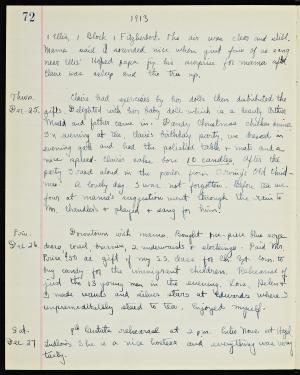 72
1913
1 Ellis, 1 Block, 1 Fitzherbert. The air was clear and still.
Mama said it sounded nice when just four of us sang
near Ellis'. Helped paper fix his surprise for mama after
Claire was asleep and the tree up.
Thurs. Claire had exercises by her dolls then distributed the
Dec. 25. gifts. Delighted with her baby doll which is a beauty. Esther
Mudd and father came in. Dandy Christmas chicken dinner.
In evening at the Claire's birthday party, we dressed in
evening gowns and had the polished table & mats and a
nice spread. Claire's cake bore 10 candles. After the
party I read aloud in the parlor from Irving's Old Christ-
mas. A lovely day. I was not forgotten. Before tea we
four at mama's suggestion went through the rain to
Mr. Chandler's & played & sang for him.
Fri. Downtown with mama. Bought one-piece blue serge
Dec. 26. dress, 2 undervests & stockings. Paid Mr.
Price $1.50 as gift of my S.S. class for
to buy candy for the immigrant children. Rehearsal of
just the 13 young men in the evening. Lois, Helen &
I made wands and silver stars at Edwards where I
unpremeditatedly staid to tea. Enjoyed myself.
Sat. rehearsal at 2 p.m. at Hazel
Dec. 27 She is a nice hostess and everything was very
tasty.